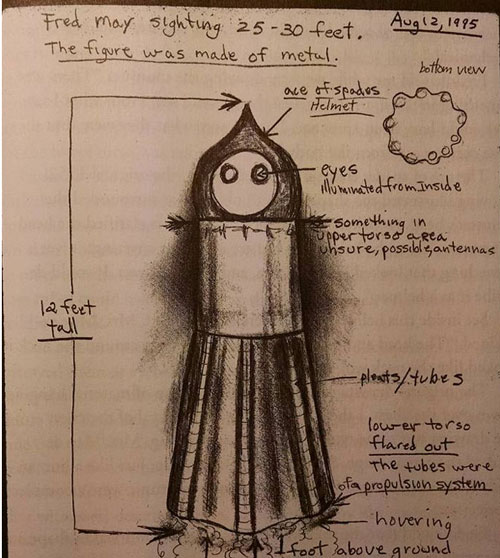 Fred may sighting 25-30 feet.
Aug 12, 1995
The figure was made of metal.
bottom view
ace of spades
Helmet
eyes
illuminated from inside
something in
upper torso area
unsure, possible, antennas
12 feet
tall
pleats/tubes
lower torso
flared out
The tubes were
of a propulsion system
hovering
1 foot above ground